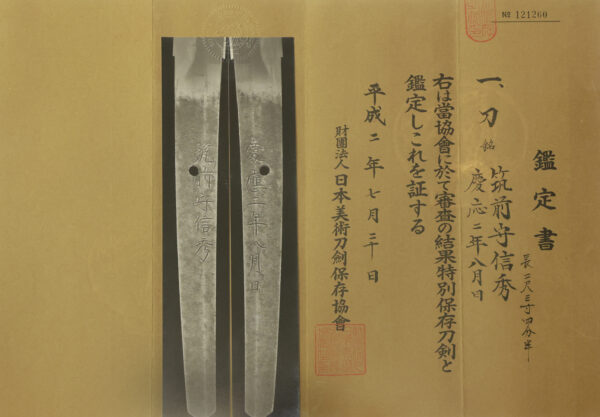 № 121260
鑑定書
一、刀 銘 筑前守信秀
慶応二年八月日
長二尺三寸四分半
右は當協會に於て審査の結果特別保存刀剣と
鑑定しこれを証する
平成二年七月三十日
財團法人日本美術刀劍保存協會
慶應二年八月日
筑前守信秀